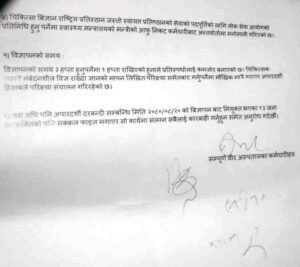 ४) चिकित्सा विज्ञान राष्ट्रिय प्रतिष्ठान जस्तो स्वायत्त प्रतिष्ठानको सेवाको पदपूर्तिको लागि लोक सेवा आयोगको
प्रतिनिधि हुनु पर्नेमा स्वास्थ्य मन्त्रालयको मन्त्रीको आफु निकट कर्मचारीबाट अन्तर्वार्तामा मनोमानी गरिएको छ।
५) विज्ञापनको समय :
विज्ञापनको समय ३ हप्ता हुनुपर्नेमा १ हप्ता राखिएको हुनाले प्रतिस्पर्धालाई कमजोर बनाएको छ। चिकित्सक
जस्तो संबेदनशील विज्ञ राख्दा ज्ञानको मापन लिखित परिक्षा समेतबाट गर्नुपर्नेमा मौखिक मात्रै गराएर अपारदर्शी
हिसाबले परिक्षा संचालन गरिरहेको छ।
अघि पनि अपारदर्शी दरबन्दी सम्बन्धि मिति २०८०/०८/२० को बिज्ञापन बाट नियुक्त भएका १३ जना
पनि सक्कल फाइल मगाएर सो कार्यमा संलग्न सबैलाई कारबाही गर्नुहुन समेत अनुरोध गर्दछौं।
सम्पूर्ण वीर अस्पतालका कर्मचारीहरु